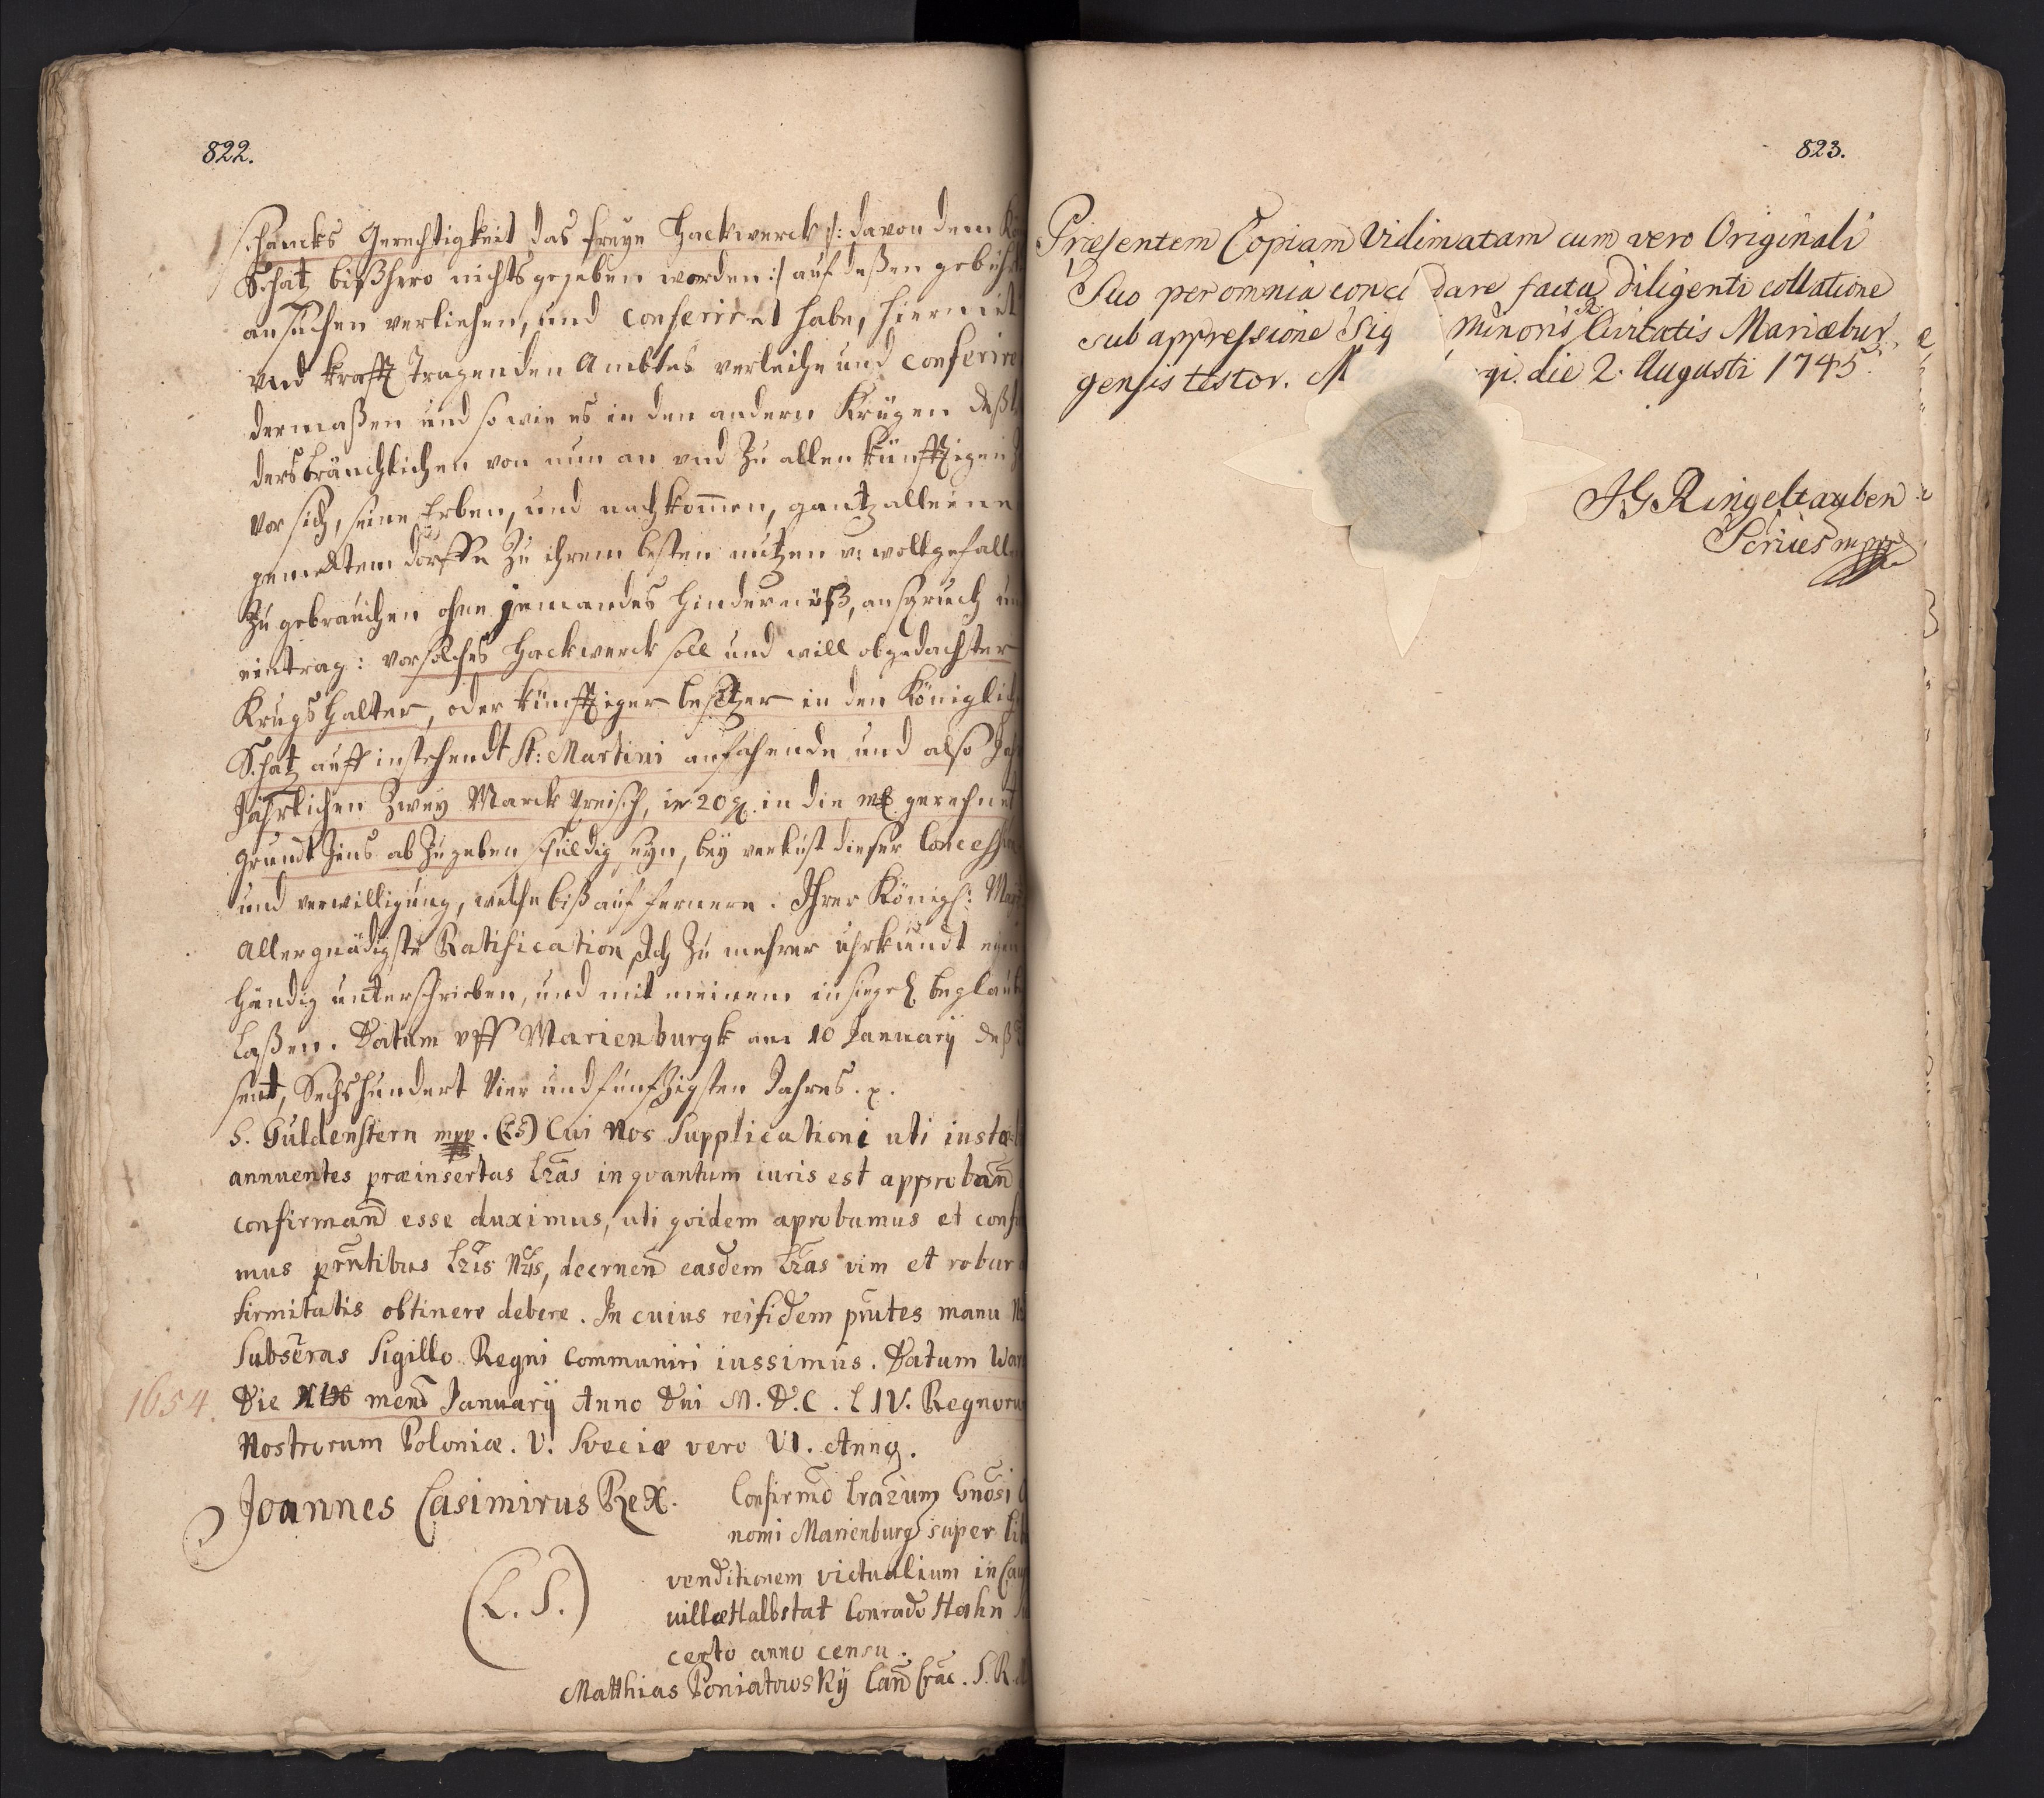 822.
schancks Gerechtigkeit das freye Hackwerck /: davon dem
Schatz bißhero nichts gegeben worden :/ auf deßen
ansuchen verliehen, und conferiret habe, hiermit
und krafft Tragenden Ambtes verleihe und conferire
dermaßen und so wie es in den andern Krügen
bräuchlichen von nun an und Zu allen künfftigen
vor sich, seine Erben, und nachkommen, gantz alleine
gemeltem dorffe Zu ihrem besten nutzen u: wollgefallen
Zu gebrauchen ohne jemandes hindernüß, anspruch
eintrag: vor solches Hackwerck soll und will obgedachter
Krugshalter, oder künfftiger besitzer in den
Schatz auff instehendt St: Martini anfahende und also
Jährlichen Zwey Marck Preisch, in die gerechnet
grundt Zins ab Zu geben schuldig seyn, bey verlust dieser
und verwilligung, welche biß auf fernere Ihrer Königl:
Allergnädigste Ratification, Ich Zu mehrer uhrkundt
händig unterschrieben, und mit meinem insiegel
Laßen. Datum uff Marienburgk am 10 January
sent, Sechshundert Vier und funfzigsten Jahres.
S. Guldenstern mpp. (LS) Cui Nos Supplicationi uti
annuentes præinsertas Lras in quantum iuris est approban
confirman esse duximus, uti quidem aprobamus et
mus pntibus Lris Nris, decernen easdem Lras vim et robur
firmitatis obtinere debere. In cuius rei fidem pntes manu
Subscras Sigillo Regni Communiri iussimus. Datum
1654. Die mens January Anno Dni M. D. C. L IV.
Nostrorum Poloniæ. V. Sveciæ vero VI. Anno.
Joannes Casimirus Rex.
Confirmo
nomi Marienburg super
(L. S.)
venditionem victualium in
villæ Halbstat Conrado Hahn
certo anno censu.
Matthias Poniatowskÿ Can Crac. S. R.
823.
Præsentem Copiam Vidimatam cum vero Originali
Suo per omnia dare facta diligenti collatione
sub appressione Minoris Civitatis Mariæbur
gensis testor. die 2. Augusti 1745.
J G Ringeltauben
mpp